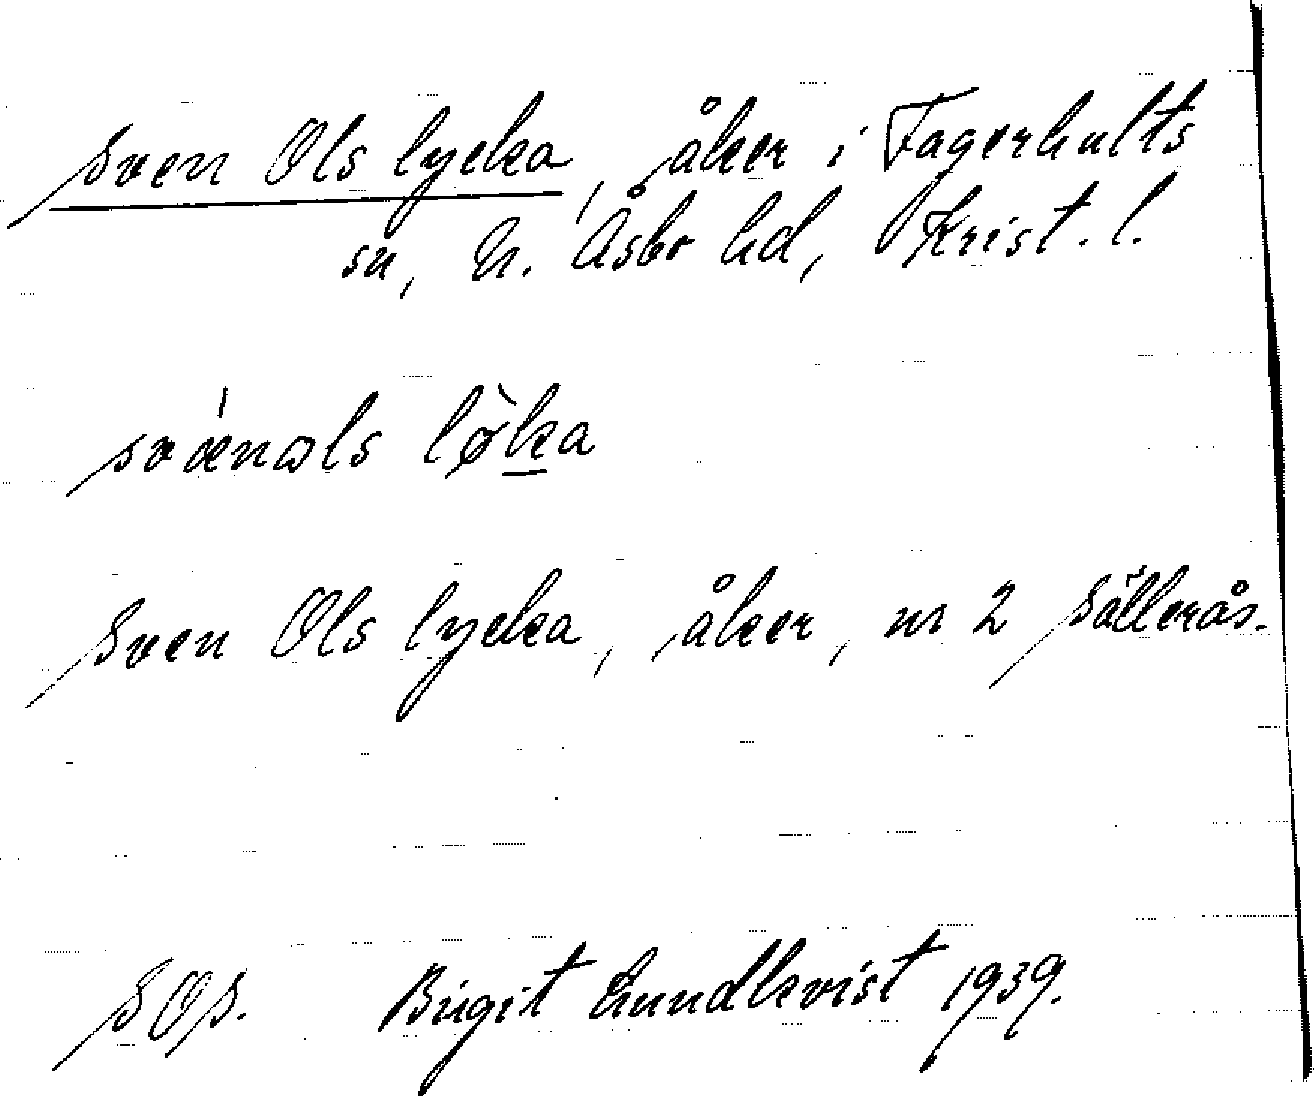 Sven Ols lycka, åker i Fagerhults
sn, N. Åsbo hd, Krist. l.
svænɷls lø̀ka
Sven Ols lycka, åker, nr 2 Sällerås.
SOS. Birgit Lundkvist 1939.